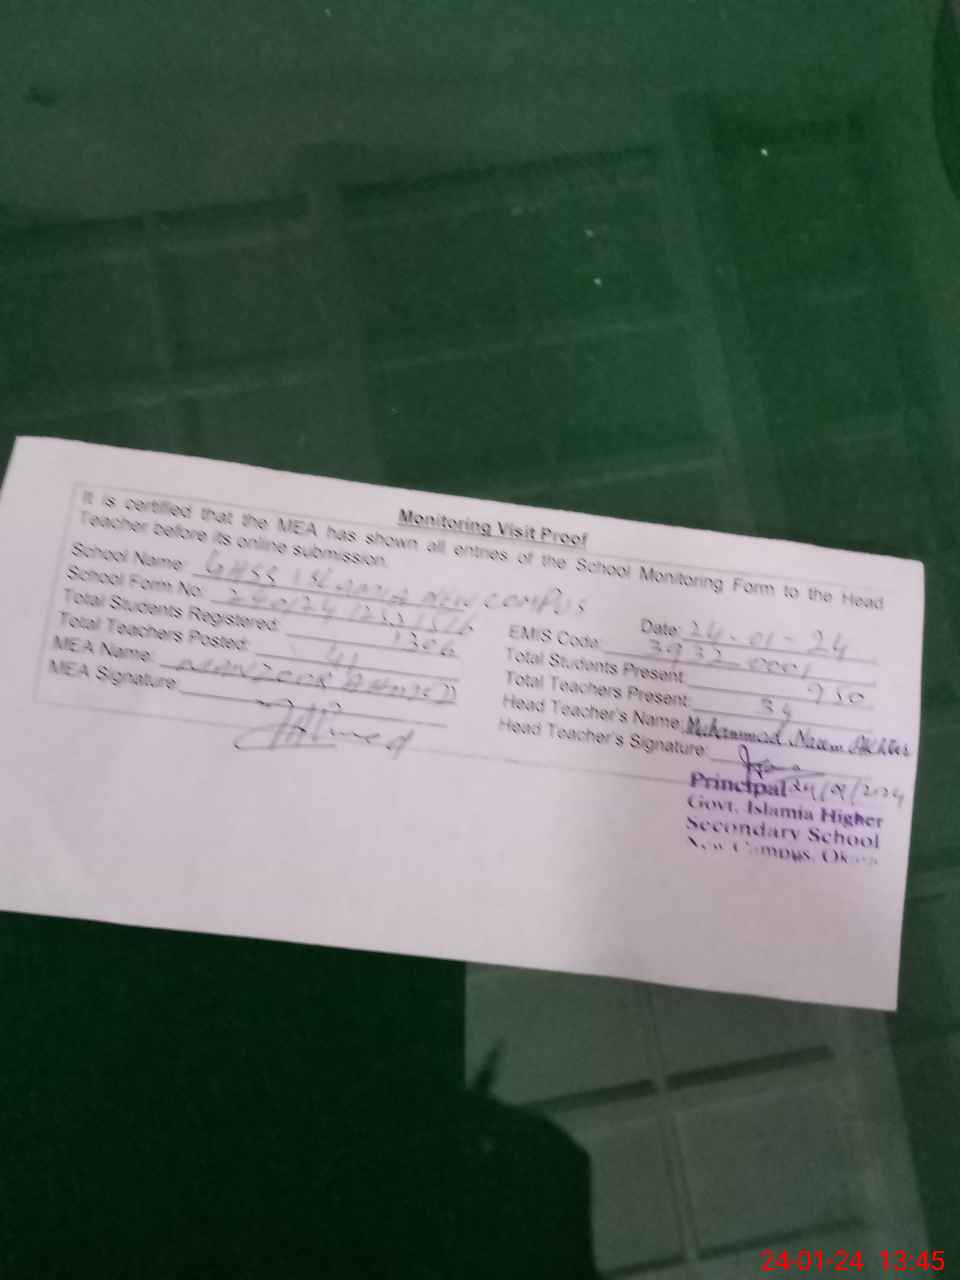 Monitoring Visit Proof
It is certified that the MEA has shown all entries of the School Monitoring Form to the Head
Teacher before its online submission.
School Name: GHSS ISLAMIA NEW COMPUS
School Form No:
Total Students Registered: 1306
Total Teachers Posted: 41
MEA Name: MANZOOR AHMED
MEA Signature: Ahmed
Date: 24-01-24
EMIS Code: 3932 0001
Total Students Present: 950
Total Teachers Present: 34
Head Teacher's Name: Muhammad Naeem Akhtar
Head Teacher's Signature:
Principal 24/01/2024
Govt. Islamia Higher
Secondary School
New Campus, Okara
24-01-24 13:45